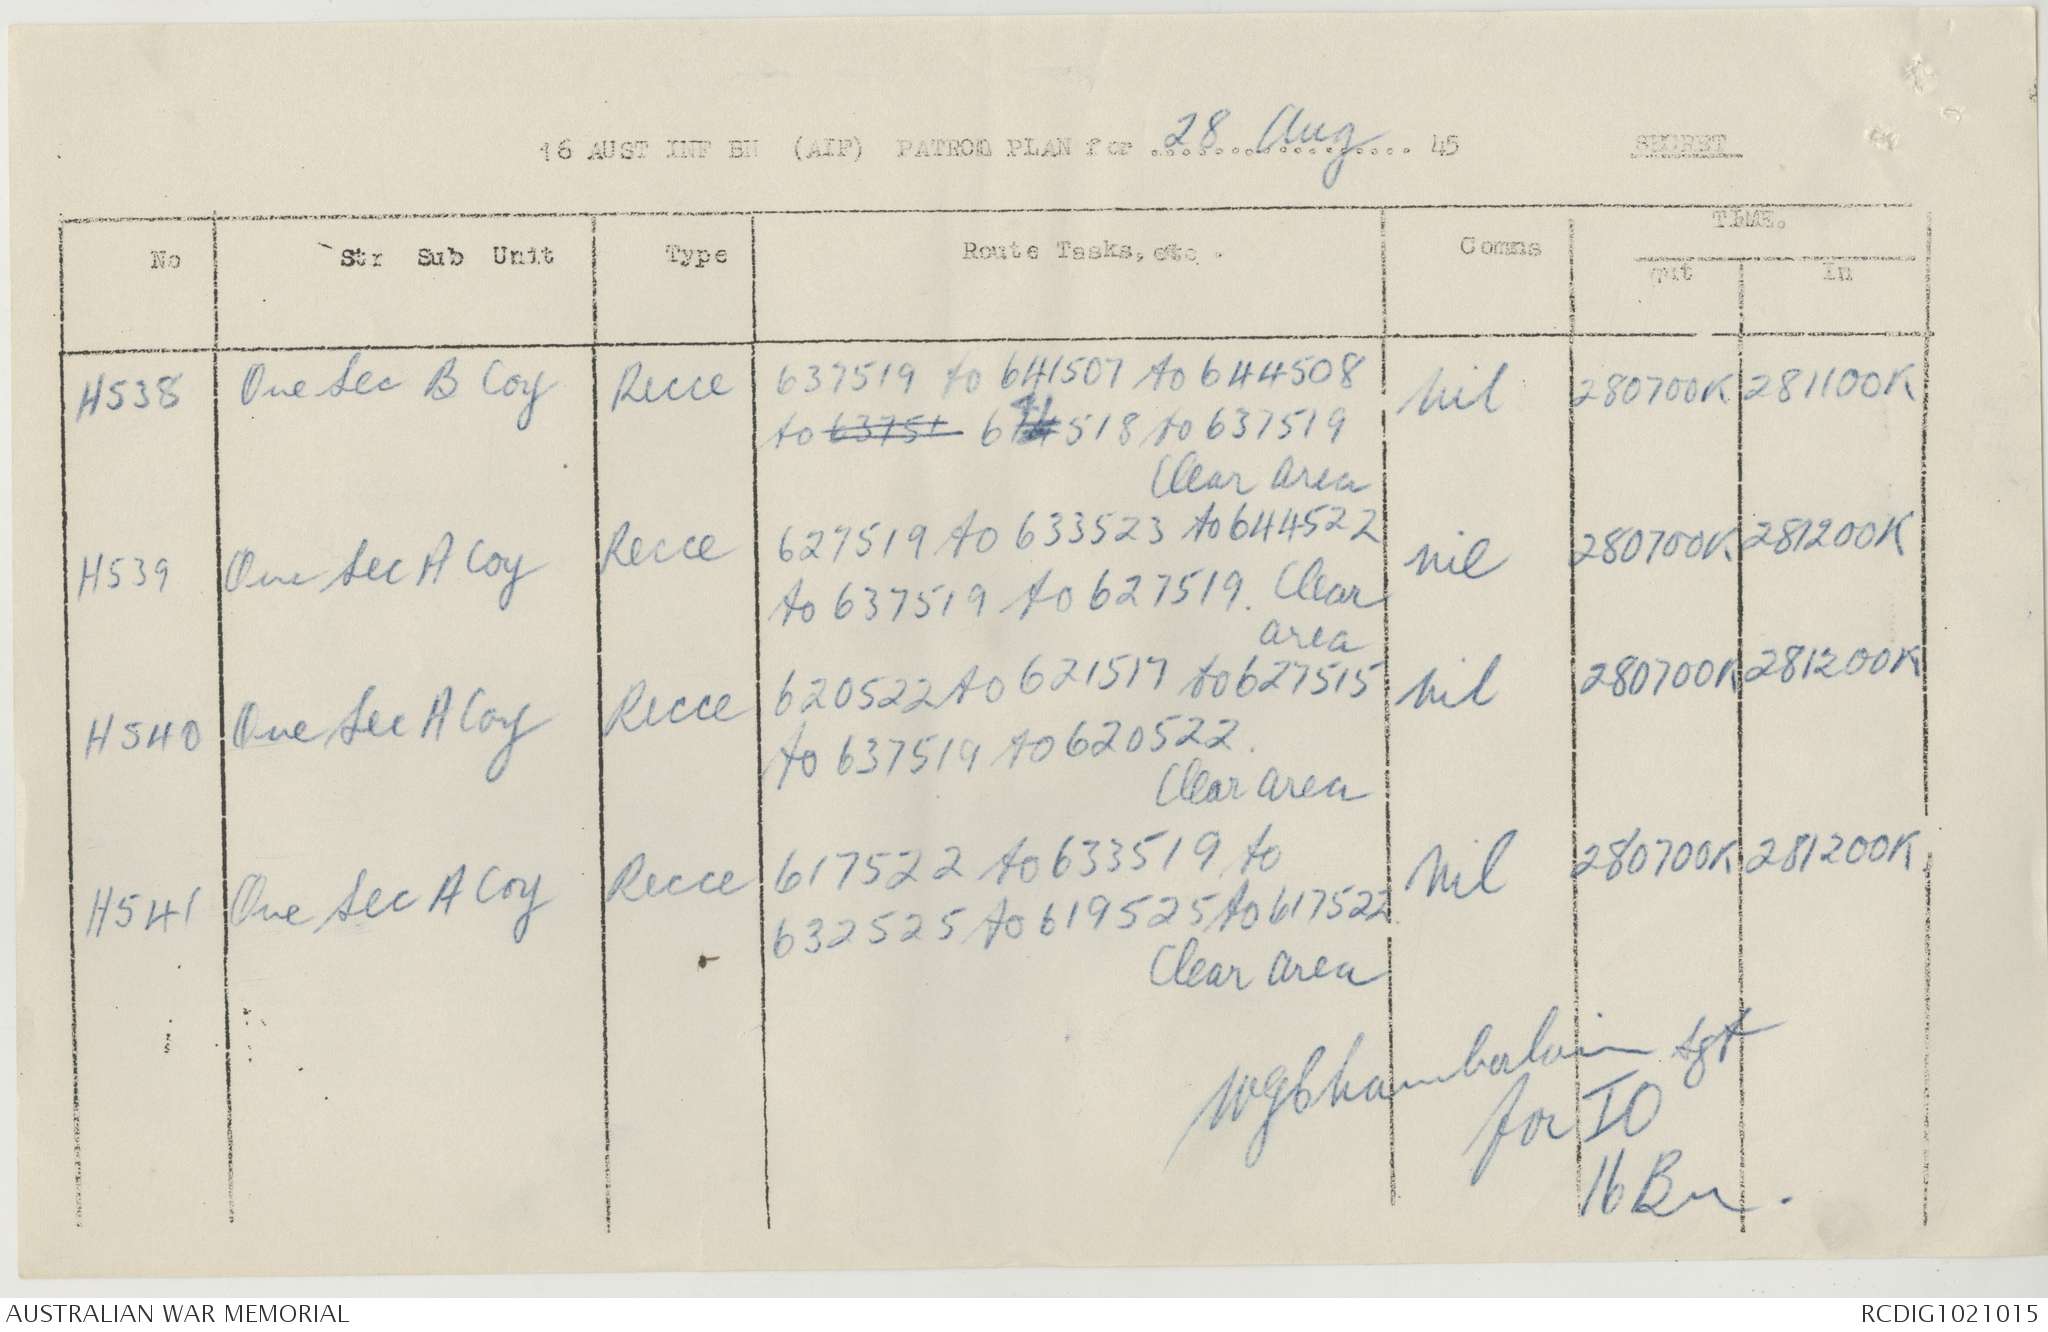 16 AUST INF BN (AIF) PATROL PLAN for 28 Aug 45 SECRET
No Str Sub Unit Type Route Tasks, etc. Comms TIME.
Out In
H538 One Sec B Coy Recce 637519 to 641507 to 644508 Nil 280700K 281100K
to 63751 518 to 637519
Clear area
H539 One Sec A Coy Recce 627519 to 633523 to 644522 Nil 280700K 281200K
to 637519 to 627519. Clear
area
H540 One Sec A Coy Recce 620522 to 621517 to 627515 Nil 280700K 281200K
to 637519 to 620522.
Clear area
H541 One Sec A Coy Recce 617522 to 633519 to Nil 280700K 281200K
632525 to 619525 to 617522.
Clear area
WGChamberlain Sgt
for IO
16 Bn.
AUSTRALIAN WAR MEMORIAL RCDIG1021015